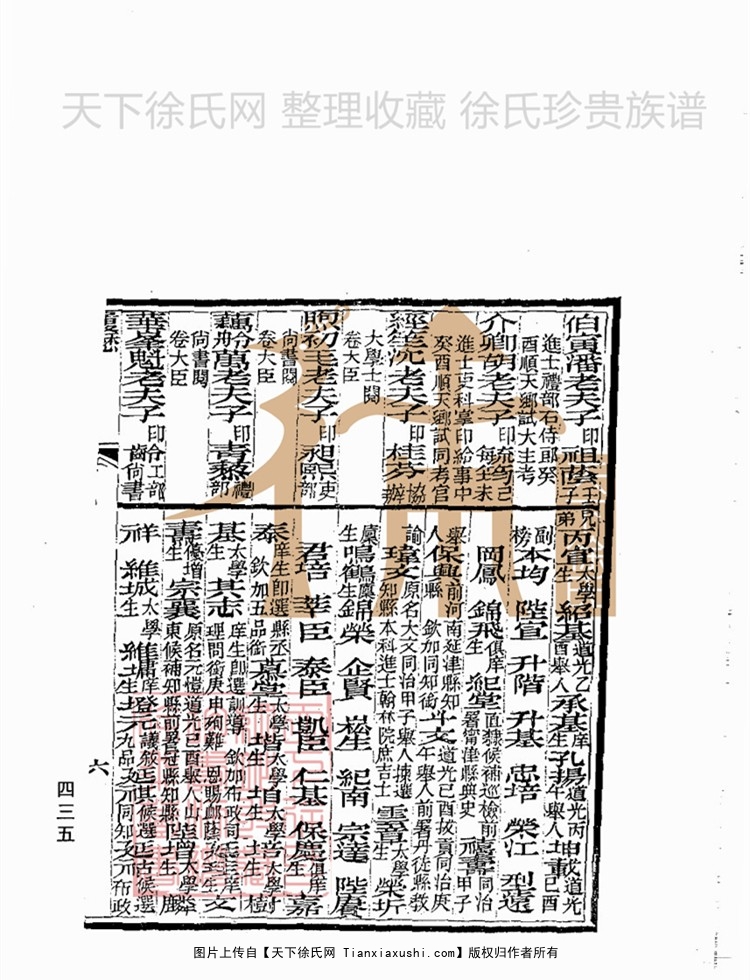 天下徐氏网 整理收藏 徐氏珍贵族谱
伯寅潘老夫子印祖蔭
進士禮部右侍郎癸
酉順天鄉試大主考
介卿胡老夫子印
進士吏科掌印給事中
癸酉順天鄉試同考官
經笙沈老夫子印桂芬協辦
大學士閱
卷大臣
煦初毛老夫子印昶熙吏部
尙書閱
卷大臣
藕舲萬老夫子印青藜禮部
尙書閱
卷大臣
魁老夫子印齡工部尙書
履歷
兄弟子
太學生
紹基道光乙酉舉人
承基庠生
孔揚道光丙午舉人
坤載道光己酉
副榜
本均
陞宣
升階
升基
忠培
榮江
型遠
岡鳳
錦飛俱庠生
紀堂直隸候補巡檢前署衛津縣典史
福書同治甲子
舉人
保興前河南延津縣知縣 欽加同知銜
斗文道光己酉拔貢同治庚午舉人前署丹徒縣教
諭
瑋文原名大文同治甲子舉人揀選知縣本科進士翰林院庶吉士
雲
太學生
榮圻
廩生
鳴鶴廩生
錦榮
企賢
崧生
紀南
宗達
陛賡
君培
莘臣
泰臣
凱臣
仁基
保慶俱庠生
嘉
泰庠生卽選縣丞欽加五品銜
嘉堂太學生
堦太學生
垣太學生
培太學生
樹
基太學生
其志庠生卽選訓導欽加布政司理問銜庚申殉難恩賜卹蔭
文
書優增生
宗襄原名元愷道光己酉舉人山東候補知縣前署冠縣知縣
陞
太學生
麟
祥
維城太學生
維墉庠生
登元九品議敘
延祺候選同知
候選布政
六
四三五
图片上传自【天下徐氏网 Tianxiaxushi.com】版权归作者所有